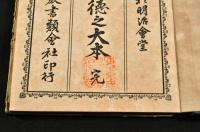 於明治會堂
德之大本 完
書類會社印行